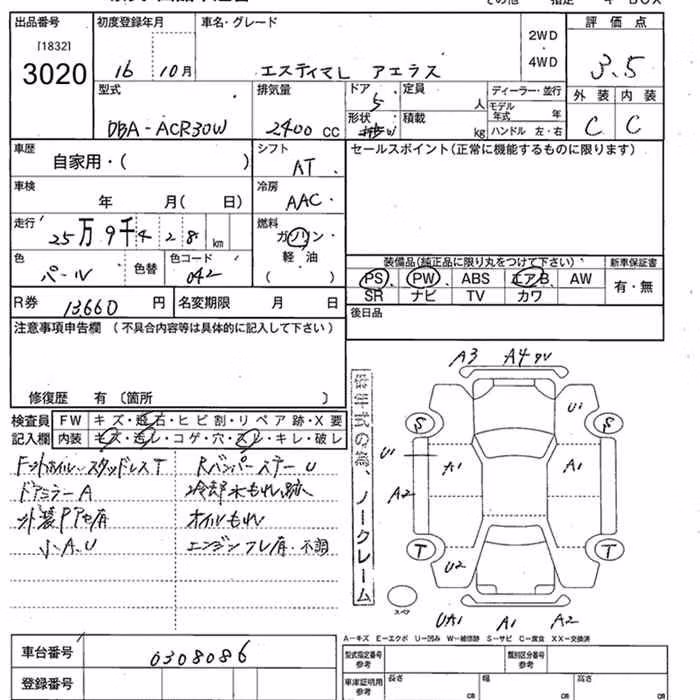 その他 指定 キ BOX
出品番号 初度登録年月 車名・グレード 評価点
[1832] 2WD
3020 16 10月 エスティマL アエラス 4WD 3.5
型式 排気量 ドア 定員 ディーラー・並行 外装 内装
5 人 モデル年式 年
DBA-ACR30W 2400 CC 形状 積載 kg ハンドル 左・右 C C
車歴 シフト セールスポイント(正常に機能するものに限ります)
自家用・( ) AT
車検 冷房
年 月(日 ) AAC
走行 燃料
25万9千428 km ガソリン
色 色替 色コード 軽油 装備品(純正品に限り丸をつけて下さい) 新車保証書
パール 042 ( ) PS、PW、ABS エアB AW 有・無
R券 13660 円 名変期限 月 日 SR ナビ TV カワ
後日品
注意事項申告欄(不具合内容等は具体的に記入して下さい)
修復歴 有(箇所 )
検査員 FW キズ・飛石・ヒビ割・リペア跡・X要
記入欄 内装 キズ・汚レ・コゲ・穴・スレ・キレ・破レ
フロントホイル・スタッドレスT RバンパーステーU
ドアミラーA 冷却水もれ跡
外装PアセA有 オイルもれ
小A.U エンジンフレ有・不調
ノークレーム
A3 A4
U1
S S
U1 A1 A1
A2
T T
U2
スペア
UA1 A1 A2
A-キズ E-エクボ U-凹み W-補修跡 S-サビ C-腐食 XX-交換済
車台番号 0308086 型式指定番号 参考 類別区分番号 参考
登録番号 車庫証明用 参考 長さ cm 幅 cm 高さ cm